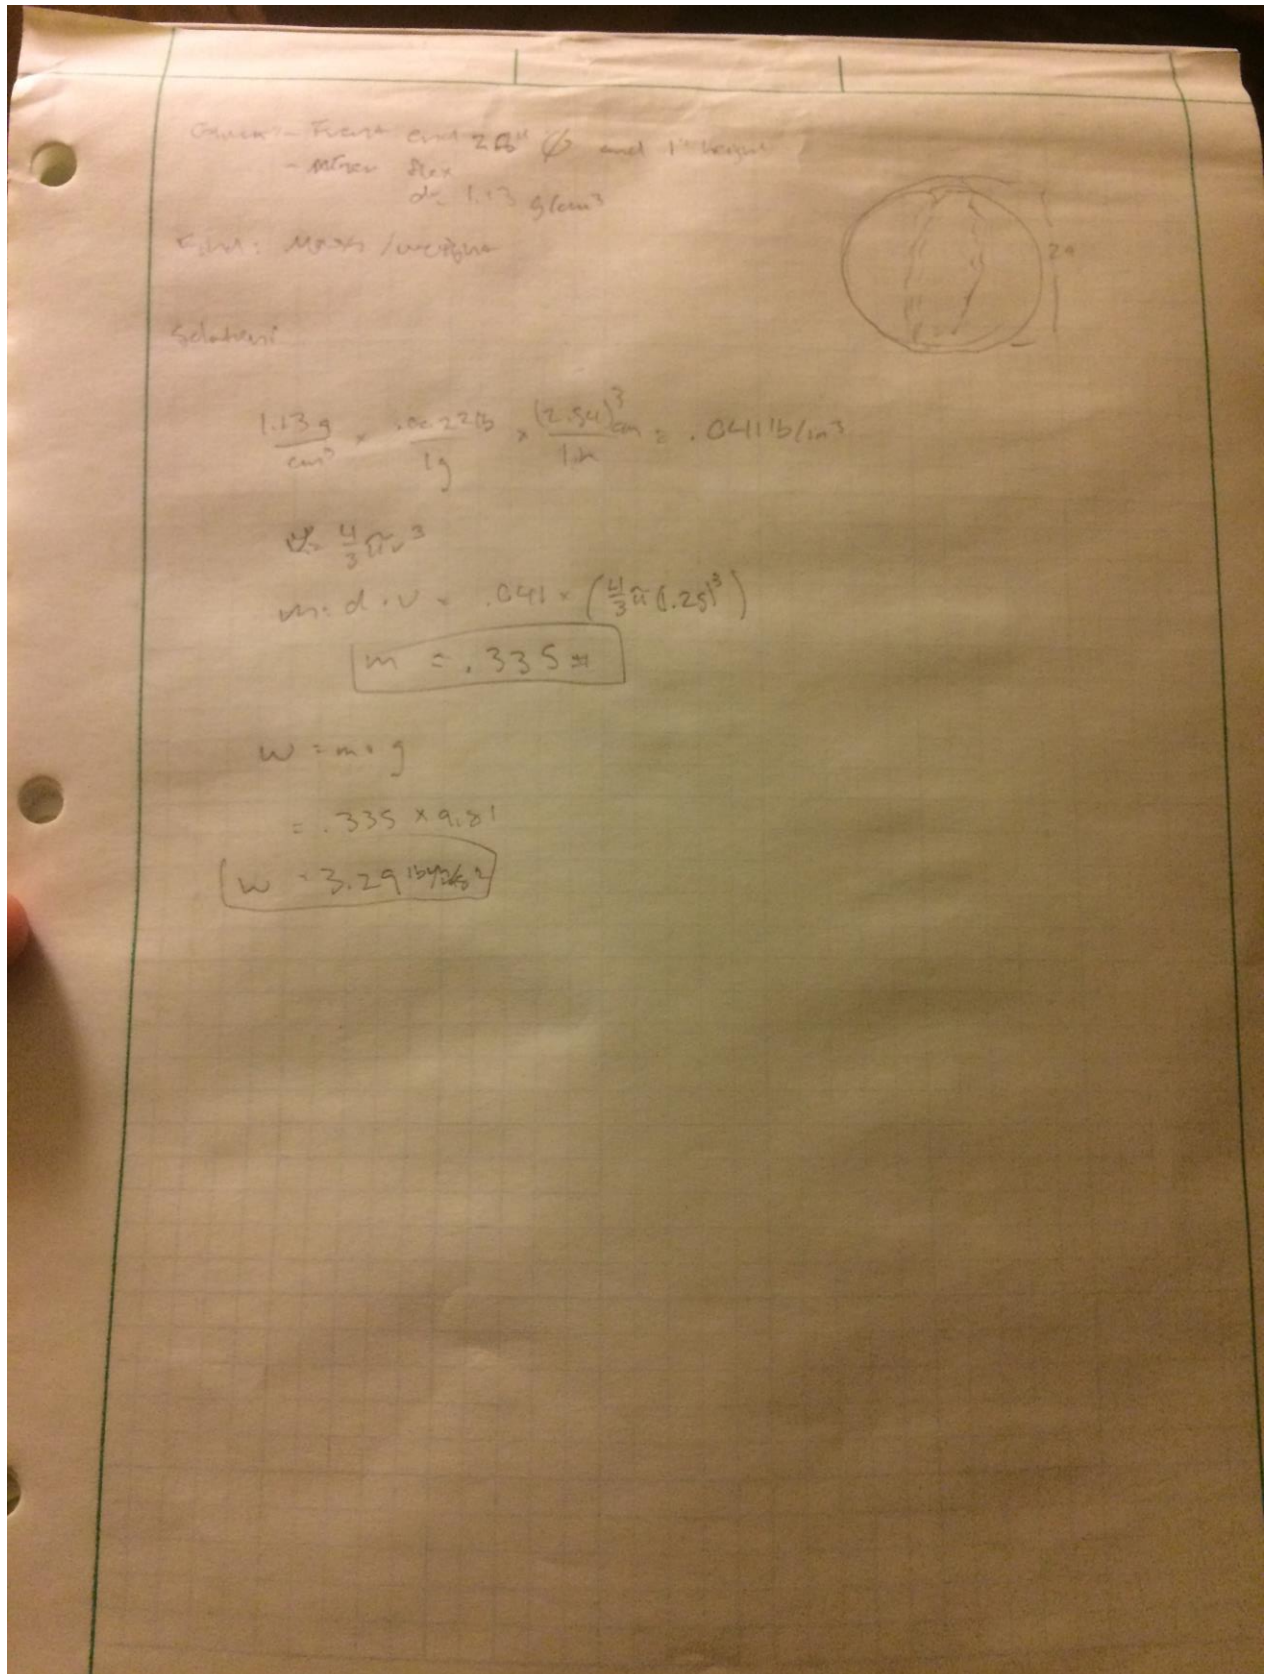 Given:- Front end 2.5" ϕ and 1" height
- Ninja flex
d= 1.13 g/cm³
Find: Mass/weight
2a
Solution:
1.13 g/cm³ × .0022lb/1g × (2.54)³cm/1in = .041 lb/in³
V= 4/3 πr³
m= d·v = .041 × (4/3 π(1.25)³)
m = .335 #
w = m·g
= .335 × 9.81
w = 3.29